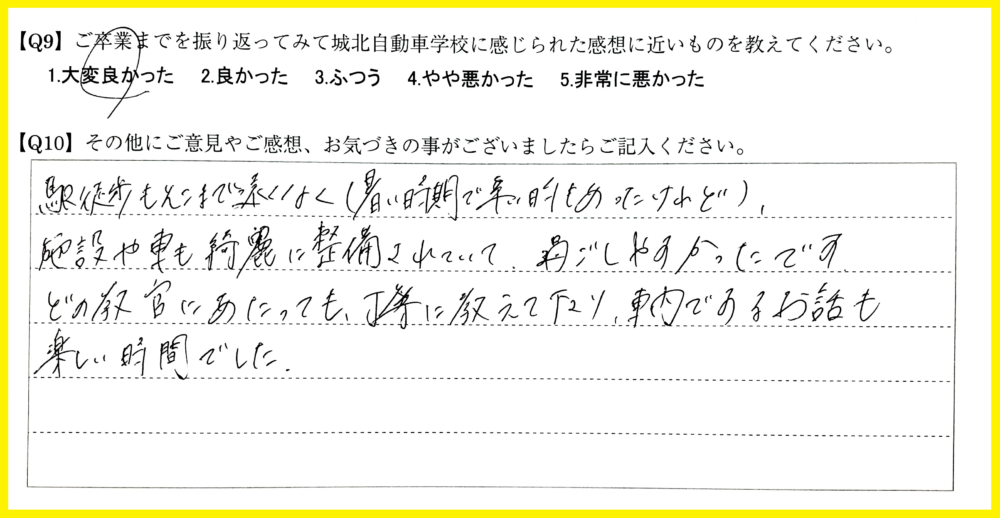 【Q9】ご卒業までを振り返ってみて城北自動車学校に感じられた感想に近いものを教えてください。
1.大変良かった 2.良かった 3.ふつう 4.やや悪かった 5.非常に悪かった
【Q10】その他にご意見やご感想、お気づきの事がございましたらご記入ください。
駅徒歩もそこまで遠くなく(暑い時期で辛い時もあったけれど)、
施設や車も綺麗に整備されていて、過ごしやすかったです。
どの教官にあたっても、丁寧に教えて下さり、車内でするお話も
楽しい時間でした。